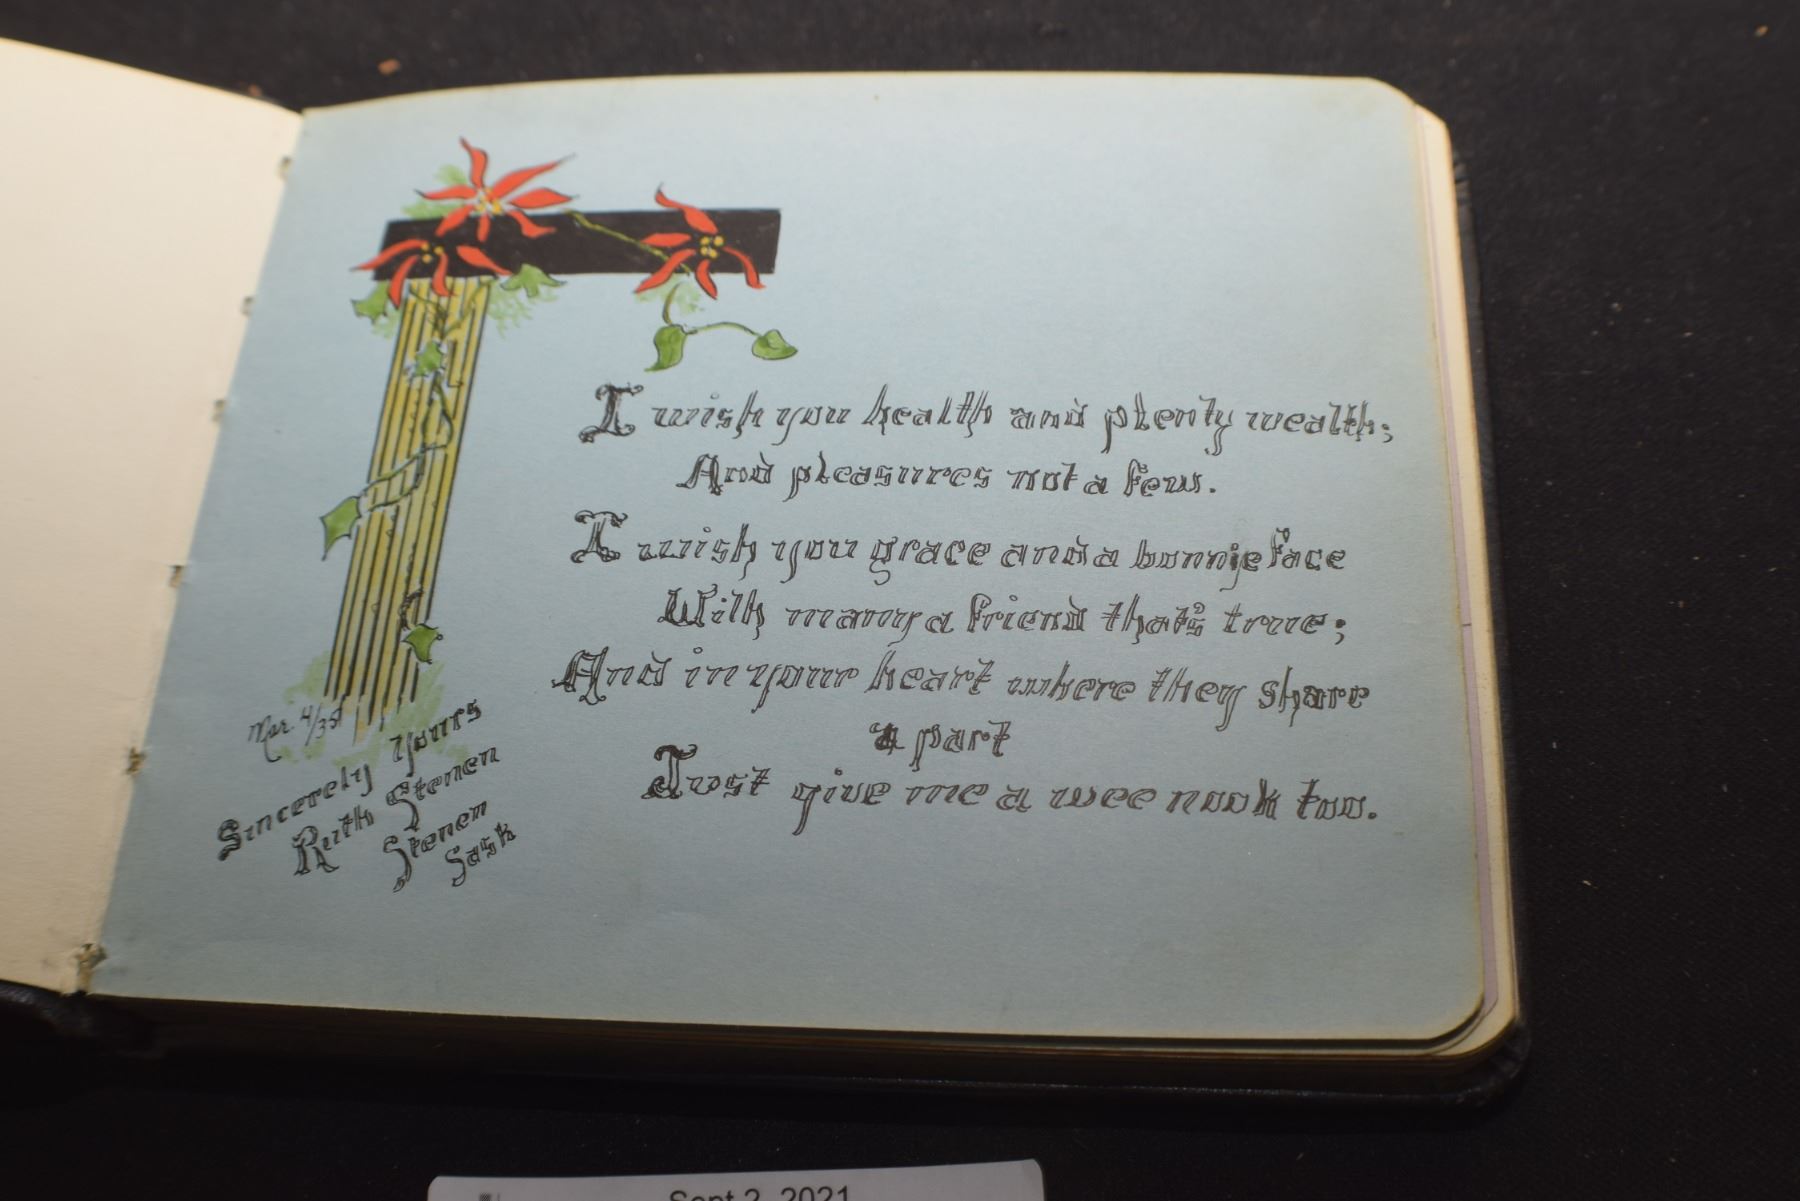 I wish you health and plenty wealth;
And pleasures not a few.
I wish you grace and a bonnie face
With many a friend that's true;
And in your heart where they share
a part
Just give me a wee nook too.
Mar. 4/35
Sincerely Yours
Ruth Stenen
Stenen
Sask
Sept 2, 2021